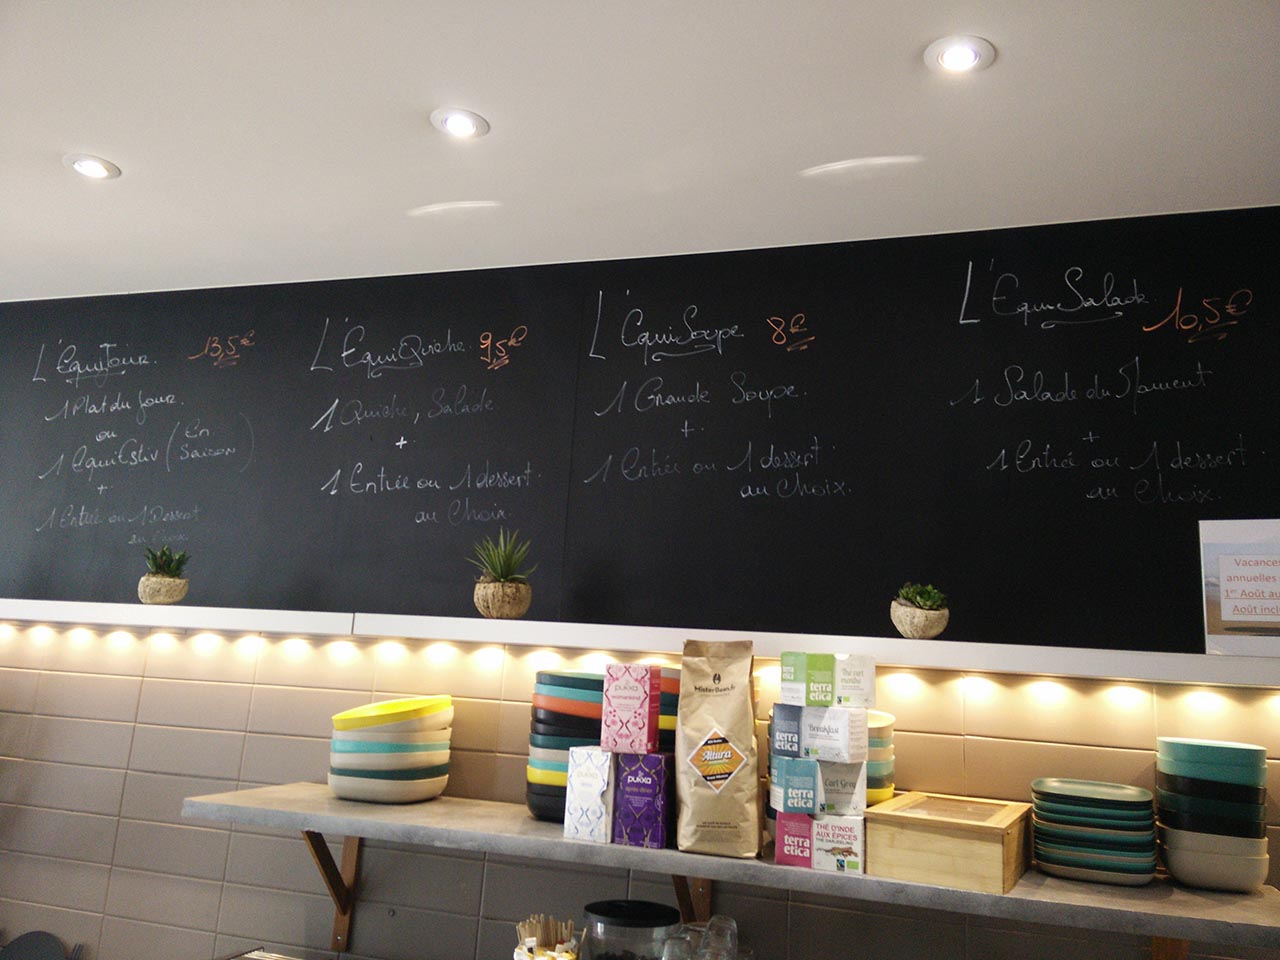 L'EquiJour. 13,5€
1 Plat du Jour.
ou
1 EquiEstiv (En Saison)
+
1 Entrée ou 1 Dessert
au Choix
L'EquiQuiche. 9,5€
1 Quiche, Salade.
+
1 Entrée ou 1 dessert.
au Choix.
L'EquiSoupe 8€
1 Grande Soupe.
+
1 Entrée ou 1 dessert.
au Choix.
L'EquiSalade. 10,5€
1 Salade du Moment
+
1 Entrée ou 1 dessert.
au Choix.
Vacances
annuelles
1er Août au
Août incl
pukka
womankind
pukka
pukka
après dîner
MisterBean.fr
Altura
terra
etica
Thé vert
menthe
terra
etica
Breakfast
terra
etica
Earl Grey
terra
etica
THÉ D'INDE
AUX ÉPICES
THÉ DARJEELING